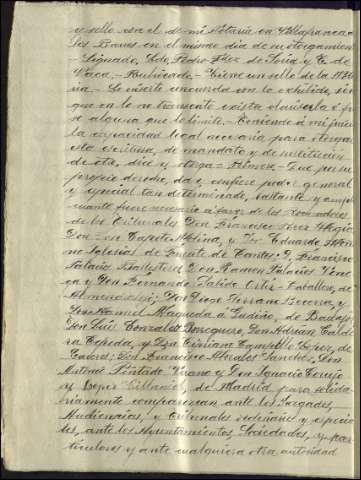 y sello con el de mi Notaria en Villafranca de
los Barros en el mismo dia de su otorgamiento
- Signado, Ldo. Pedro de Soria y C. de
Vaca. - Rubricado. - Tiene un sello de la Nota
ria. - Lo inserto concuerda con lo exhibido, sin
que en lo no transcrito exista clausula
se alguna que lo limite. - Teniendo á mi juicio
la capacidad legal necesaria para otorgar
esta escritura, de mandato y de sustitución
de otro, dice y otorga = Primero. - Que por su
propio derecho, da y confiere poder general
y especial tan determinado, bastante y amplio
cuanto fuere necesario á favor de los Procuradores
de los Tribunales Don Francisco Perez
Don José Molina, y Dn. Eduardo
no Iglesias de Fuente de Cantos: D. Francisco
Palacios Ballesteros, Don Ramon Palacios
y Don Bernardo Ortiz Caballero, de
Almendralejo; Don Diego Becerra, y
Don Manuel Maqueda de Badajoz,
Don Luis Gonzalez Borreguero, Don Adrián
Cepeda, y Don de
Caceres; Don Francisco Morales Sanchez, Don
Antonio Pintado y Don Ignacio Corujo
y Lopez Villamil, de Madrid para que solida
riamente comparezcan ante los Juzgados,
Audiencias, y Tribunales ordinarios y especia
les, ante los Ayuntamientos, Sociedades, y par
ticulares y ante cualquiera otra autoridad